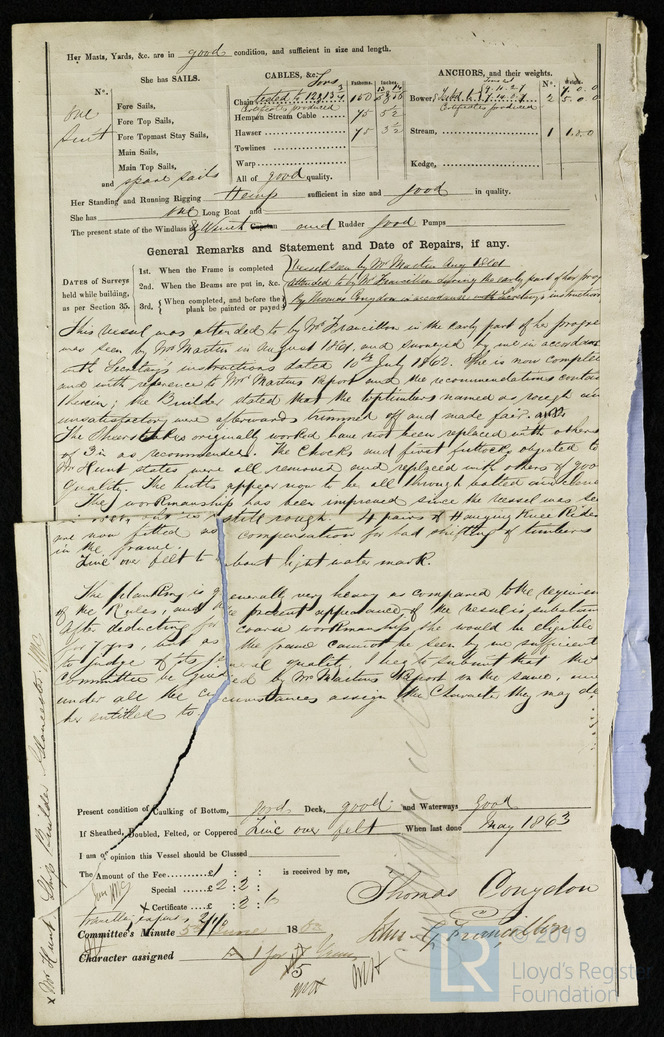 Her Masts, Yards, &c. are in good condition, and sufficient in size and length.
She has SAILS.
CABLES, &c.
ANCHORS, and their weights.
N°.
Fathoms.
Inches.
N°.
Weight.
One
Suit
Fore Sails,
Fore Top Sails,
Fore Topmast Stay Sails,
Main Sails,
Main Top Sails,
and spare sails
Tons
Chain
tested to
Certificate produced
150
Hempen Stream Cable
75 5½
Hawser
75 3½
Towlines
Warp
All of good quality.
Bower,
2
7.0.0
5.0.0
Certificate produced
Stream,
1
Kedge,
Her Standing and Running Rigging Hemp sufficient in size and good in quality.
She has one Long Boat and
The present state of the Windlass & Winch Capstan and Rudder good Pumps
General Remarks and Statement and Date of Repairs, if any.
DATES of Surveys held while building, as per Section 35.
1st. When the Frame is completed Vessel seen by Mr Martin Aug 1861
2nd. When the Beams are put in, &c. attended to by Mr Francillon during the early part of her prog
3rd. When completed, and before the plank be painted or payed By Thomas Congdon in accordance with Secretary's instructions
This vessel was attended to by Mr Francillon in the early part of her progress
was seen by Mr Martin in August 1861, and surveyed by me in accordance
with Secretary's instructions dated 10th July 1862. She is now complete
and with reference to Mr Martins report and the recommendations contain
therein; the Builder stated that the toptimbers named as rough and
unsatisfactory were afterwards trimmed off and made fair. and
The Sheerstrakes originally worked have not been replaced with others
of 3 in as recommended. The Chocks and first futtocks objected to
Mr Hunt states were all removed and replaced with others of good
quality. The butts appear now to be all through bolted and clench
The workmanship has been improved since the vessel was seen
still rough. 4 pairs of Hanging Knee Riders
are now fitted as compensation for bad shifting of timbers
in the frame.
Zinc over felt to about light water mark.
The planking is generally very heavy as compared to the requirem
of the Rules, and the present appearance of the vessel is substan
After deducting for coarse workmanship she would be eligible
for 7 yrs, but as the frame cannot be seen by me sufficient
to judge of its general quality, I beg to submit that the
Committee be guided by Mr Martins Report on the same, and
under all the circumstances assign the Character they may de
her entitled to.
Present condition of Caulking of Bottom, good Deck, good and Waterways good
If Sheathed, Doubled, Felted, or Coppered Zinc over felt When last done May 1863
I am of opinion this Vessel should be Classed
The Amount of the Fee £1 : : is received by me,
Special £2 : 2 :
x Certificate £ : 2 : 6
travelling expens
Thomas Congdon
John G Francillon
Committee's Minute 5th June 1863
Character assigned A 1 for Years
5
x Mr Hunt Ship Builder Gloucester
© 2019
LR
Lloyd's Register
Foundation